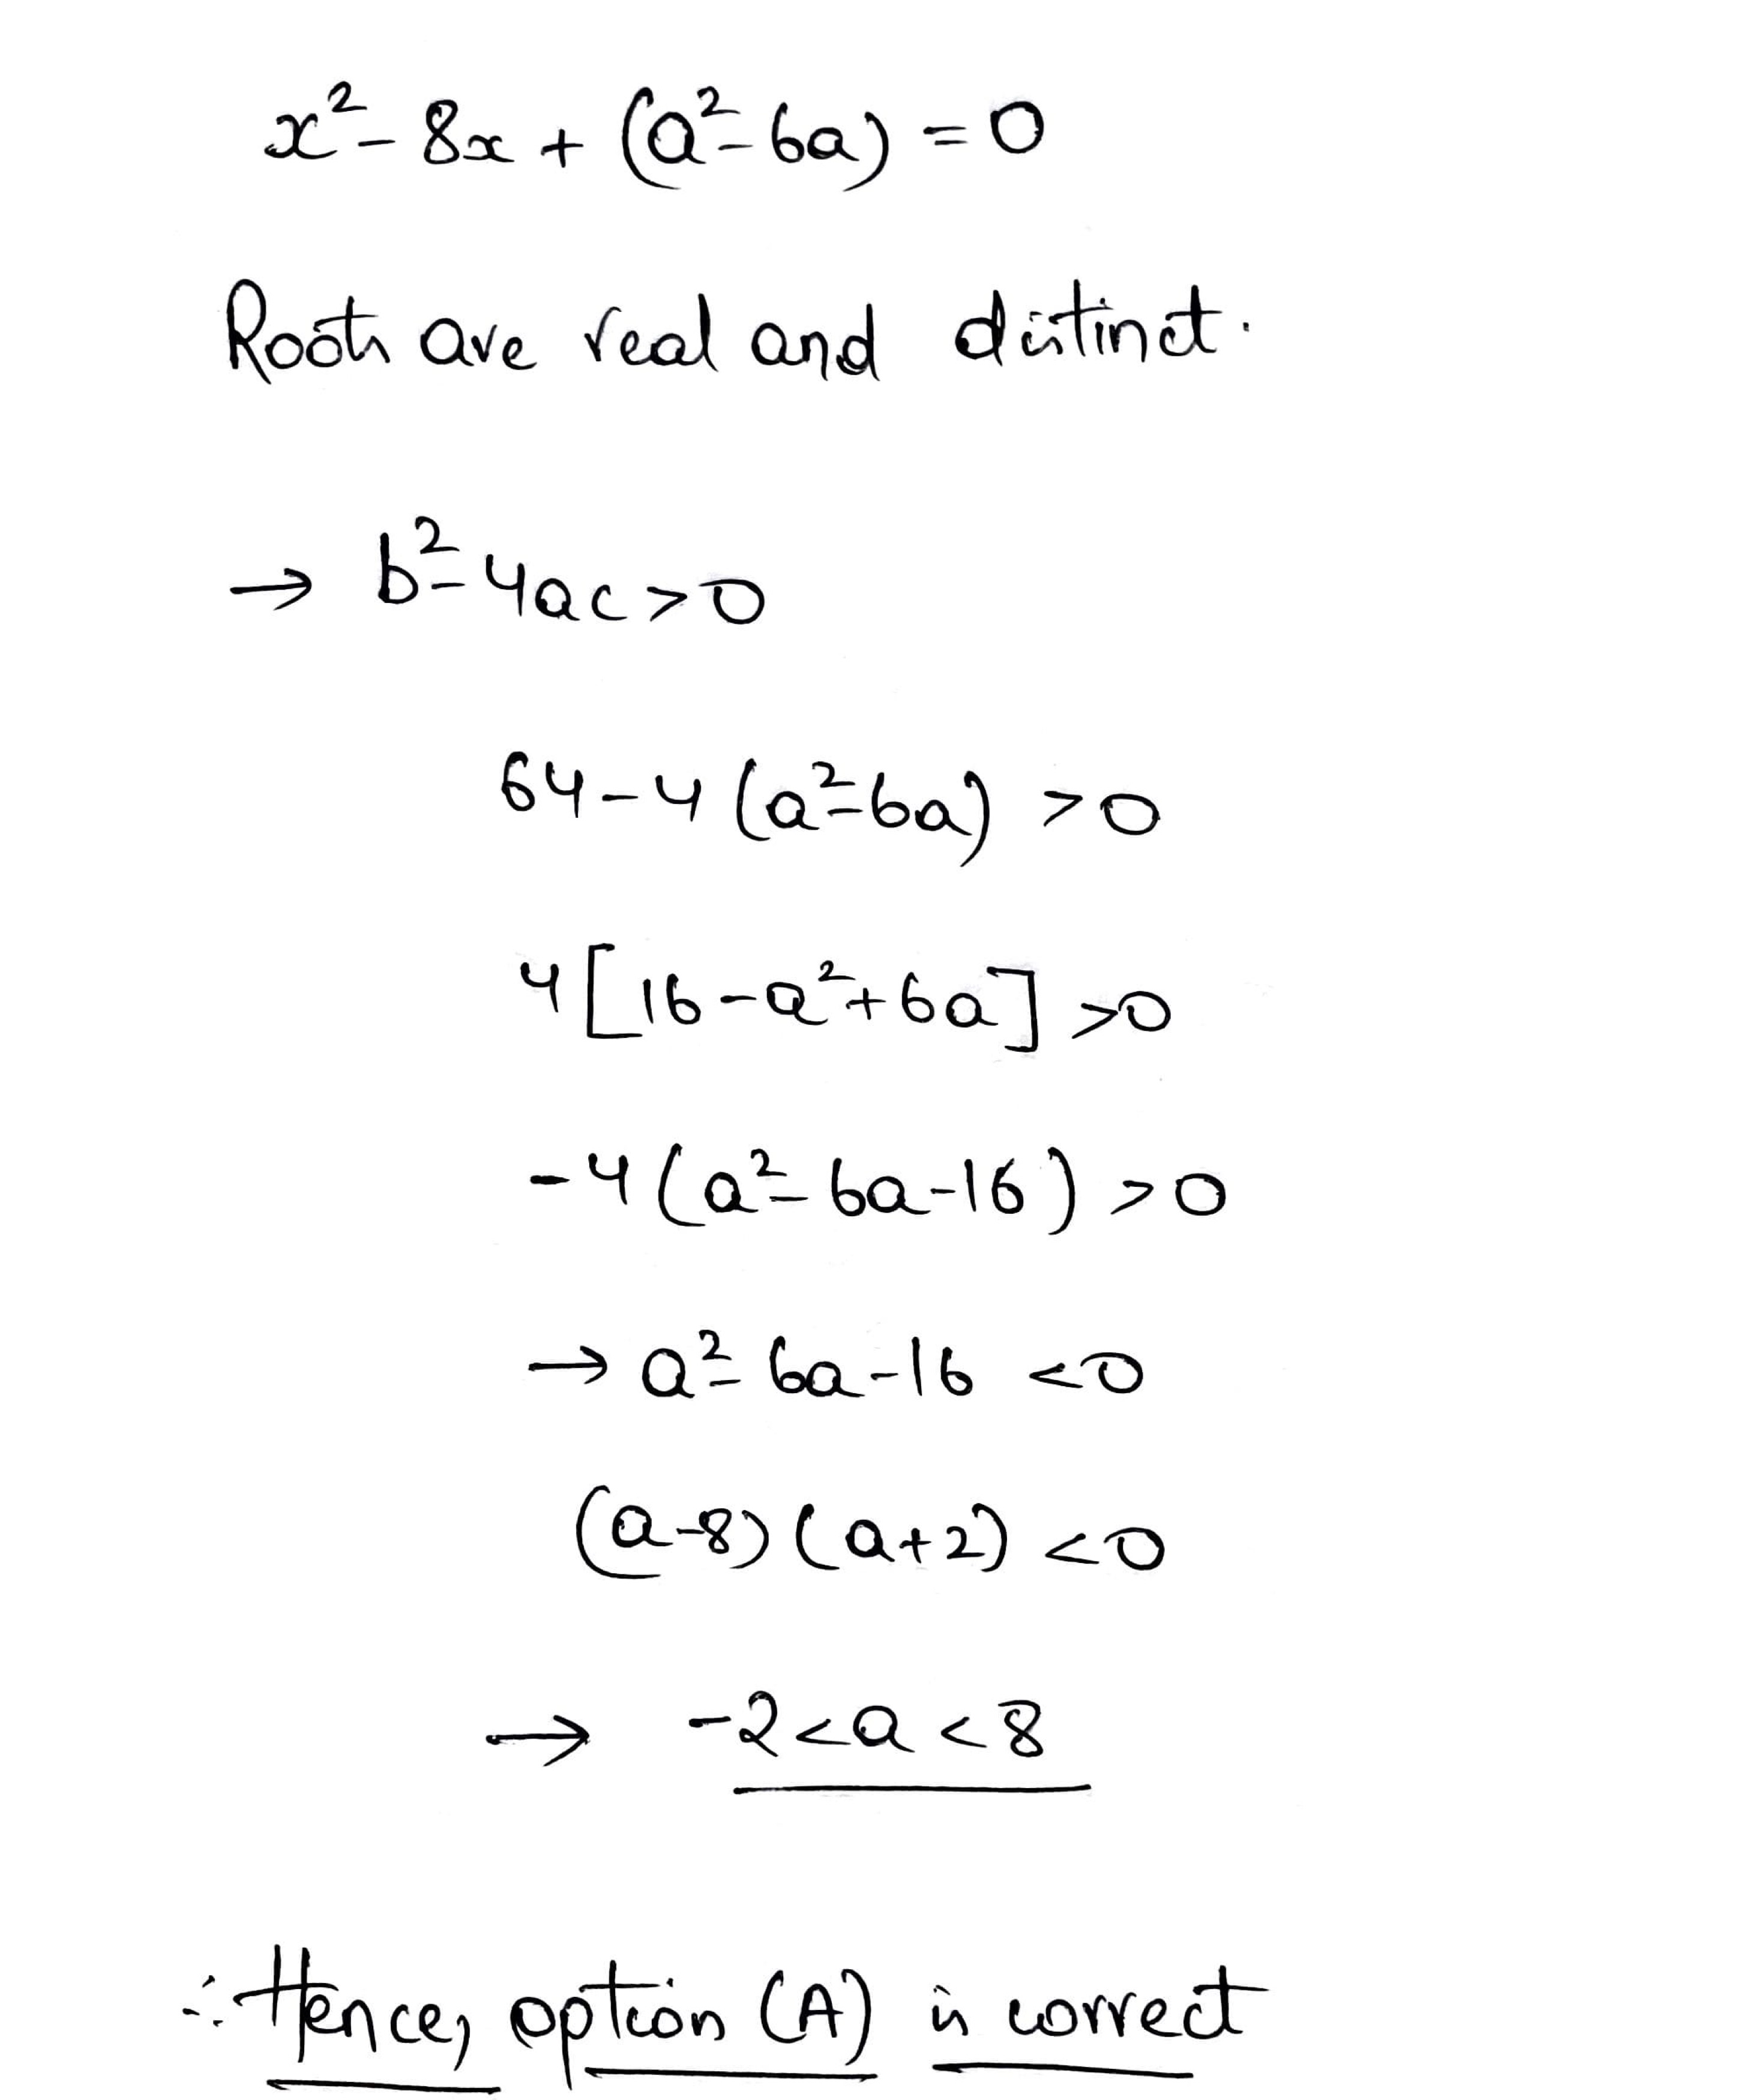 x² - 8x + (a² - 6a) = 0
Roots are real and distinct.
→ b² - 4ac > 0
64 - 4(a² - 6a) > 0
4[16 - a² + 6a] > 0
-4(a² - 6a - 16) > 0
→ a² - 6a - 16 < 0
(a-8)(a+2) < 0
→ -2 < a < 8
∴ Hence, option (A) is correct